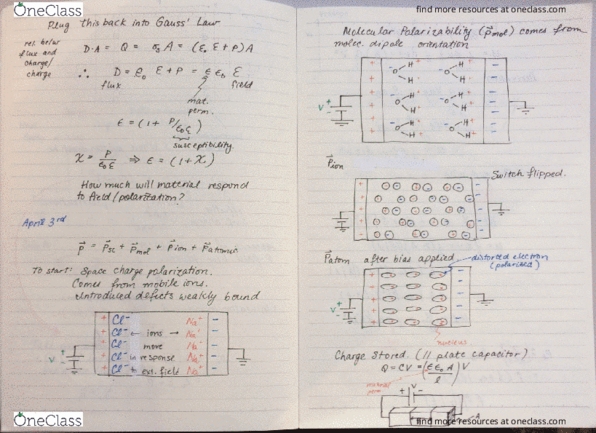 OneClass
find more resources at oneclass.com
Plug this back into Gauss' Law
rel. betw
flux and
charge/
charge
D·A = Q = A = (ε₀ E + P) A
∴ D = E + P = ε ε₀ E
flux
field
mat.
perm.
ε = (1 + P/ε₀ε)
susceptibility
χ = P/ε₀ε ⇒ ε = (1 + χ)
How much will material respond
to field/polarization?
April 3rd
P = Psc + Pmol + Pion + Patomic
To start: Space charge polarization.
Comes from mobile ions.
Introduced defects weakly bound
+ Cl⁻ Na⁺ −
+ Cl⁻ ← ions → Na⁺ −
+ Cl⁻ move Na⁺ −
+ Cl⁻ in response Na⁺ −
+ Cl⁻ to ext. field Na⁺ −
V
OneClass
Molecular Polarizability (Pmol) comes from
molec. dipole orientation
V
Pion
Switch flipped.
Patom after bias applied
distorted electron
(polarized)
V
nucleus
Charge Stored. (// plate capacitor)
Q = CV = (ε ε₀ A / l) V
V
find more resources at oneclass.com